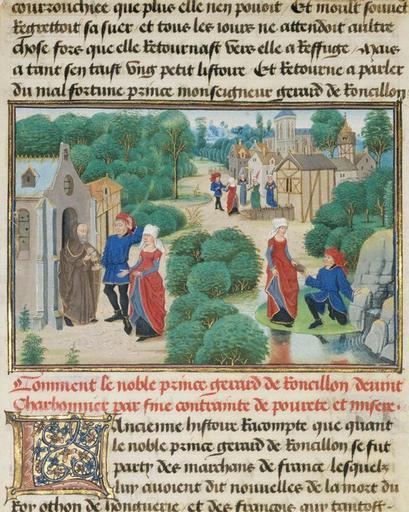 courzouchiee que plus elle nen pouoit Et moult souuet
Regrettoit sa suer et tous les iours ne attendoit aultre
chose fors que elle Retournast vers elle a Reffuge. Mais
a tant sen taist vng petit listoire Et Retourne a parler
du mal fortune prince monseigneur gerard de Roncillon
Comment le noble prince gerard de Roncillon deuint
Charbonnier par fine contrainte de pourete et misere.
Lancienne histoire Racompte que quant
le noble prince gerard de Roncillon se fut
party des marchans de france lesquelz
luy auoient dit nouuelles de la mort du
Roy othon de honguerie et des francois quy tantost